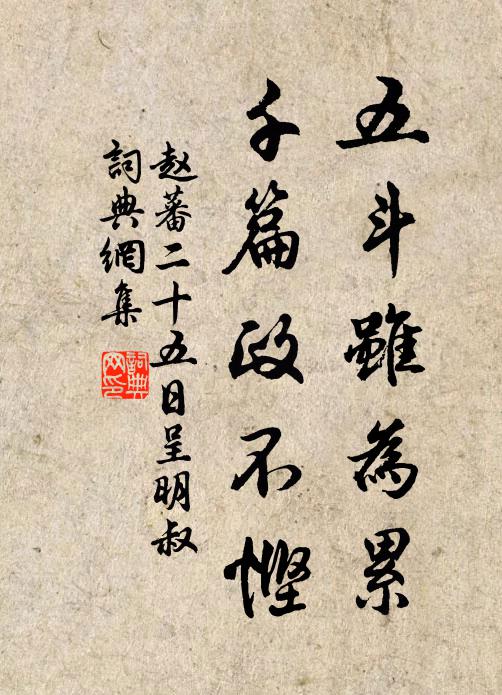 五斗雖為累
千篇政不慳
赵蕃二十五日呈明叔
詞典網集
詞典網印